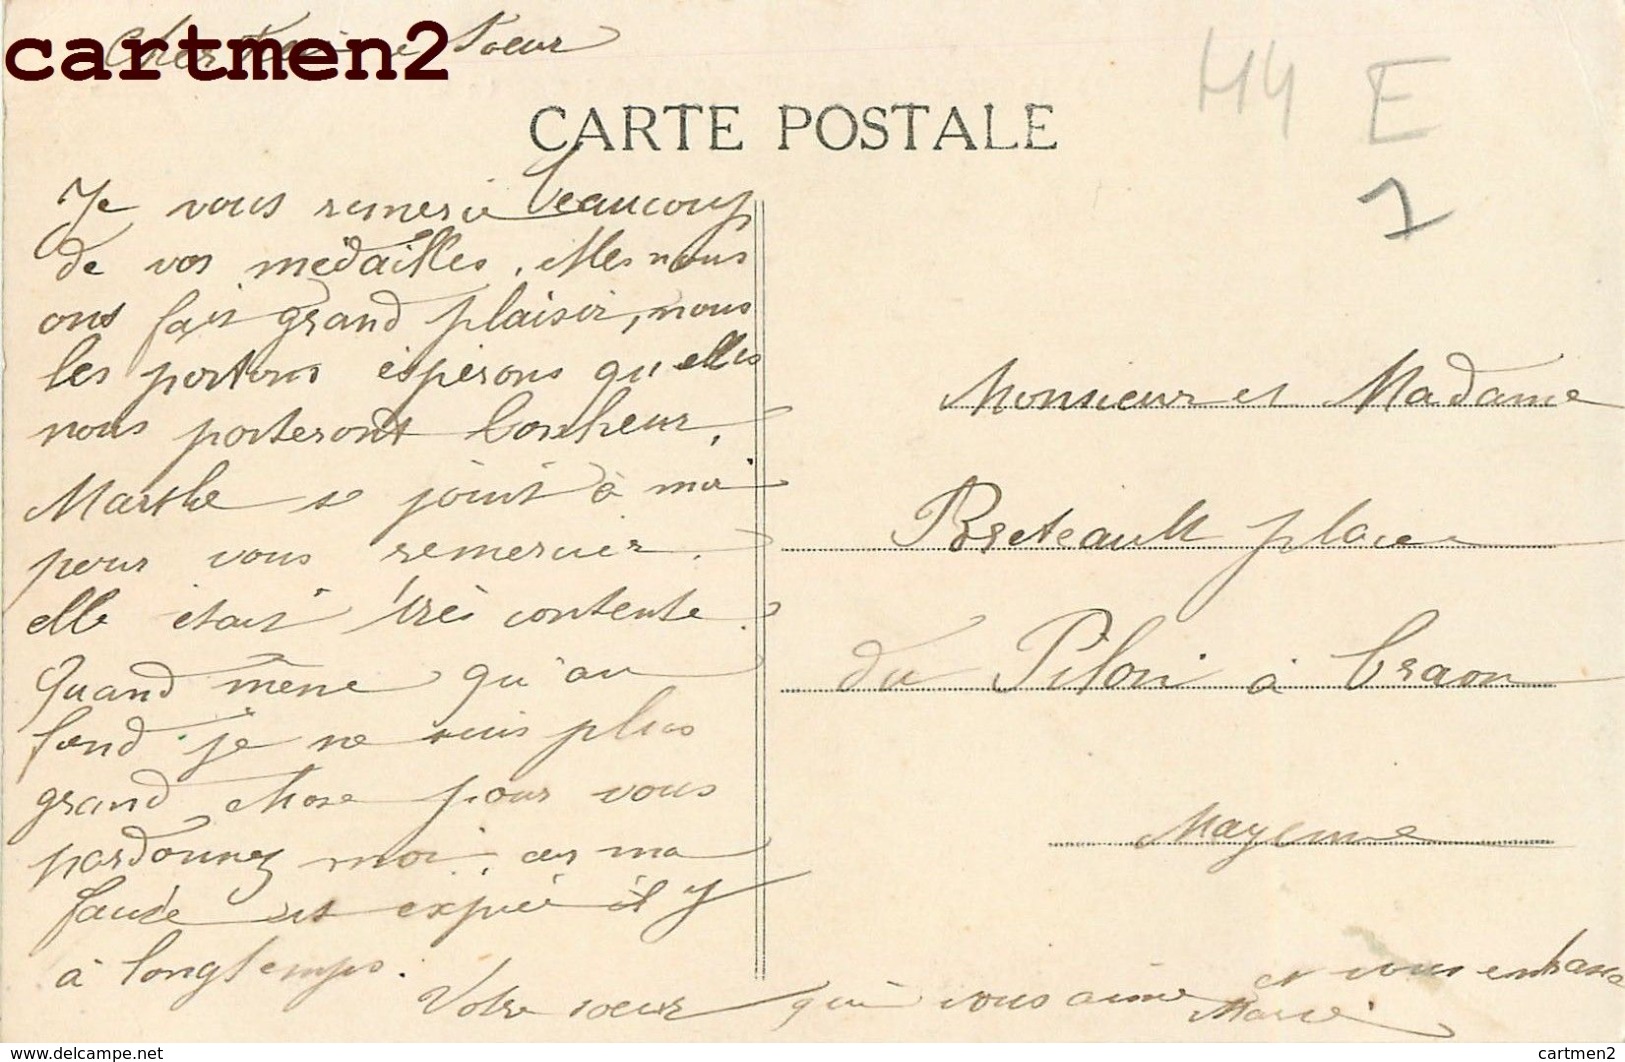 cartmen2
Cher Frère Soeur
H4 E
CARTE POSTALE
1
Je vous remercie beaucoup
de vos médailles. elles nous
ont fait grand plaisir, nous
les portons éspérons qu elles
nous porteront bonheur.
Marthe se joint à moi
pour vous remercier.
elle était très contente.
Quand même qu'au
fond je ne suis plus
grand chose pour vous
pardonnez moi, car ma
faute est expiée il y
à longtemps.
Votre soeur qui vous aime et vous embrasse
Marie
Monsieur et Madame
Breteault place
du Pilori à Craon
Mayenne
www.delcampe.net
cartmen2